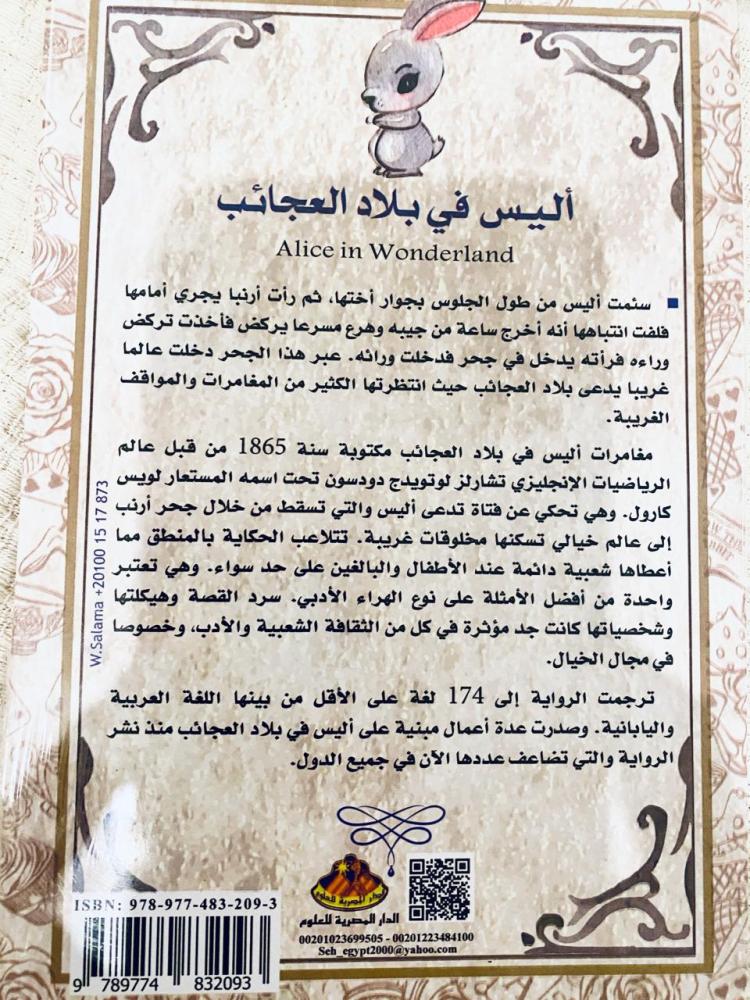 أليس في بلاد العجائب
Alice in Wonderland
سئمت أليس من طول الجلوس بجوار أختها، ثم رأت أرنبا يجري أمامها
فلفت انتباهها أنه أخرج ساعة من جيبه وهرع مسرعا يركض فأخذت تركض
وراءه فرأته يدخل في جحر فدخلت ورائه. عبر هذا الجحر دخلت عالما
غريبا يدعى بلاد العجائب حيث انتظرتها الكثير من المغامرات والمواقف
الغريبة.
مغامرات أليس في بلاد العجائب مكتوبة سنة 1865 من قبل عالم
الرياضيات الإنجليزي تشارلز لوتويدج دودسون تحت اسمه المستعار لويس
كارول. وهي تحكي عن فتاة تدعى أليس والتي تسقط من خلال جحر أرنب
إلى عالم خيالي تسكنها مخلوقات غريبة. تتلاعب الحكاية بالمنطق مما
أعطاها شعبية دائمة عند الأطفال والبالغين على حد سواء. وهي تعتبر
واحدة من أفضل الأمثلة على نوع الهراء الأدبي. سرد القصة وهيكلتها
وشخصياتها كانت جد مؤثرة في كل من الثقافة الشعبية والأدب، وخصوصا
في مجال الخيال.
ترجمت الرواية إلى 174 لغة على الأقل من بينها اللغة العربية
واليابانية. وصدرت عدة أعمال مبنية على أليس في بلاد العجائب منذ نشر
الرواية والتي تضاعف عددها الآن في جميع الدول.
W.Salama +20100 15 17 873
الدار المصرية للعلوم
الدار المصرية للعلوم
00201023699505 - 00201223484100
Seh_egypt2000@yahoo.com
ISBN: 978-977-483-209-3
9 789774 832093